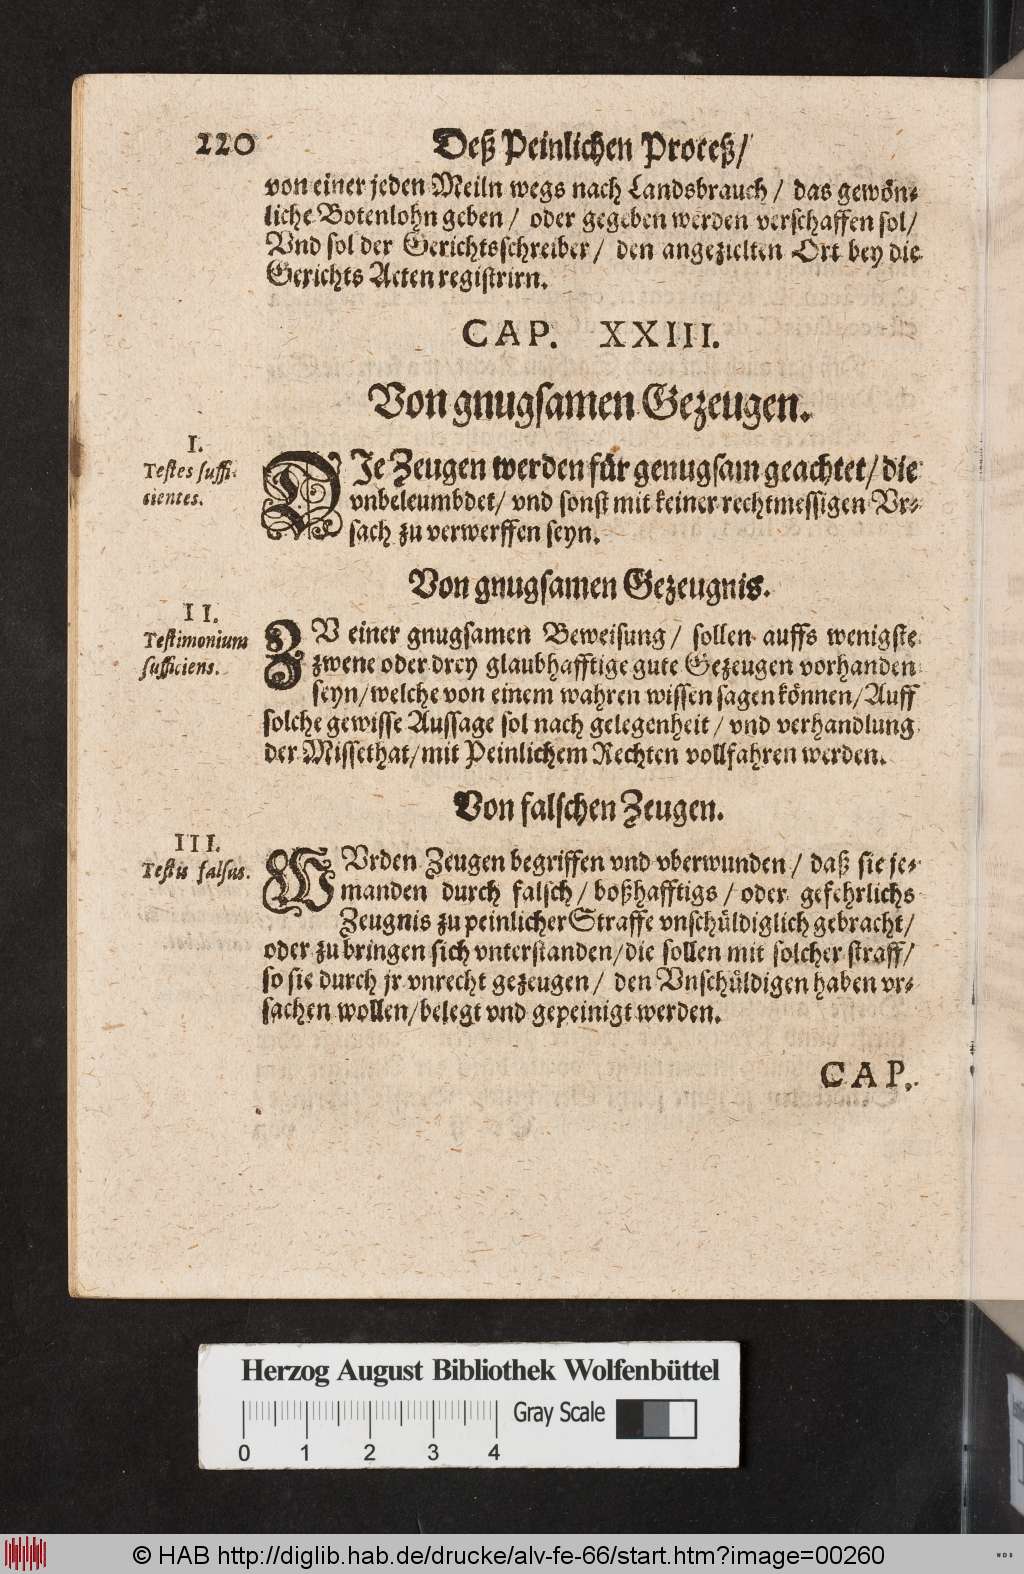 220
Deß Peinlichen Proceß/
von einer jeden Meiln wegs nach Landsbrauch / das gewön-
liche Botenlohn geben / oder gegeben werden verschaffen sol/
Vnd sol der Gerichtsschreiber / den angezielten Ort bey die
Gerichts Acten registrirn.
CAP. XXIII.
Von gnugsamen Gezeugen.
I.
Testes suffi-
cientes.
DIe Zeugen werden für genugsam geachtet/ die
vnbeleumbdet/ vnd sonst mit keiner rechtmessigen Vr-
sach zu verwerffen seyn.
Von gnugsamen Gezeugnis.
II.
Testimonium
sufficiens.
ZV einer gnugsamen Beweisung / sollen auffs wenigste
zwene oder drey glaubhafftige gute Gezeugen vorhanden
seyn/welche von einem wahren wissen sagen können/Auff
solche gewisse Aussage sol nach gelegenheit / vnd verhandlung
der Missethat/mit Peinlichem Rechten vollfahren werden.
Von falschen Zeugen.
III.
Testis falsus.
WVrden Zeugen begriffen vnd vberwunden / daß sie je-
manden durch falsch / boßhafftigs / oder gefehrlichs
Zeugnis zu peinlicher Straffe vnschüldiglich gebracht/
oder zu bringen sich vnterstanden/die sollen mit solcher straff/
so sie durch jr vnrecht gezeugen / den Vnschüldigen haben vr-
sachen wollen/belegt vnd gepeinigt werden.
CAP.
Herzog August Bibliothek Wolfenbüttel
Gray Scale
0 1 2 3 4
© HAB http://diglib.hab.de/drucke/alv-fe-66/start.htm?image=00260